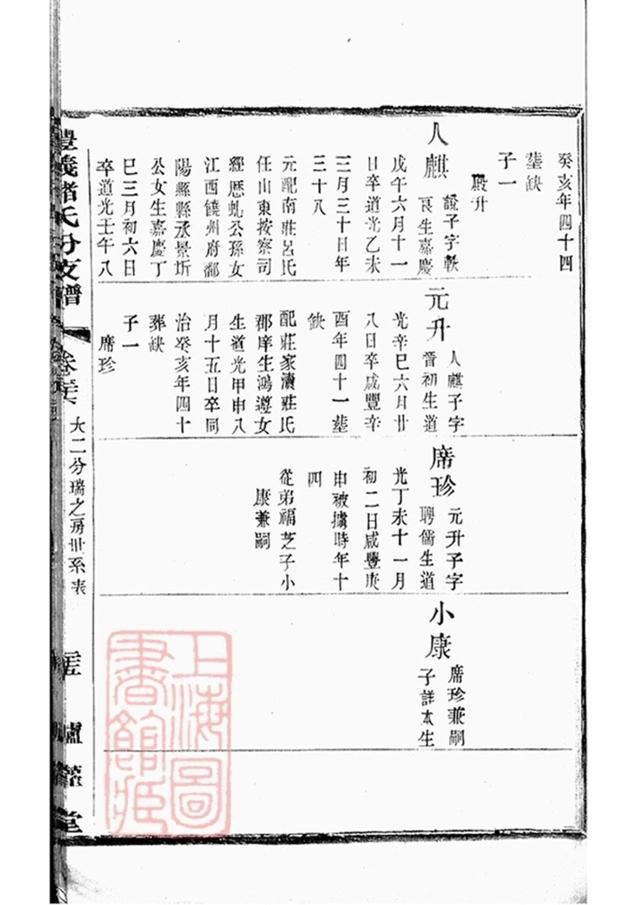 癸亥年四十四
塟缺
子一
殿升
人麒
詵子字軼
良生嘉慶
戊午六月十一
日卒道光乙未
三月三十日年
三十八
元配南莊呂氏
任山東按察司
經歷虬公孫女
江西饒州府鄱
陽縣縣丞景圻
公女生嘉慶丁
巳三月初六日
卒道光壬午八
元升
人麒子字
晉初生道
光辛巳六月廿
八日卒咸豐辛
酉年四十一塟
缺
配莊家瀆莊氏
郡庠生鴻遵女
生道光甲申八
月十五日卒同
治癸亥年四十
葬缺
子一
席珍
席珍
元升子字
聘儒生道
光丁未十一月
初二日咸豐庚
申被擄時年十
四
從弟福芝子小
康兼嗣
小康
席珍兼嗣
子詳本生
豐義儲氏分支譜
大二分瑞之房世系表
堂
上海圖
書館藏